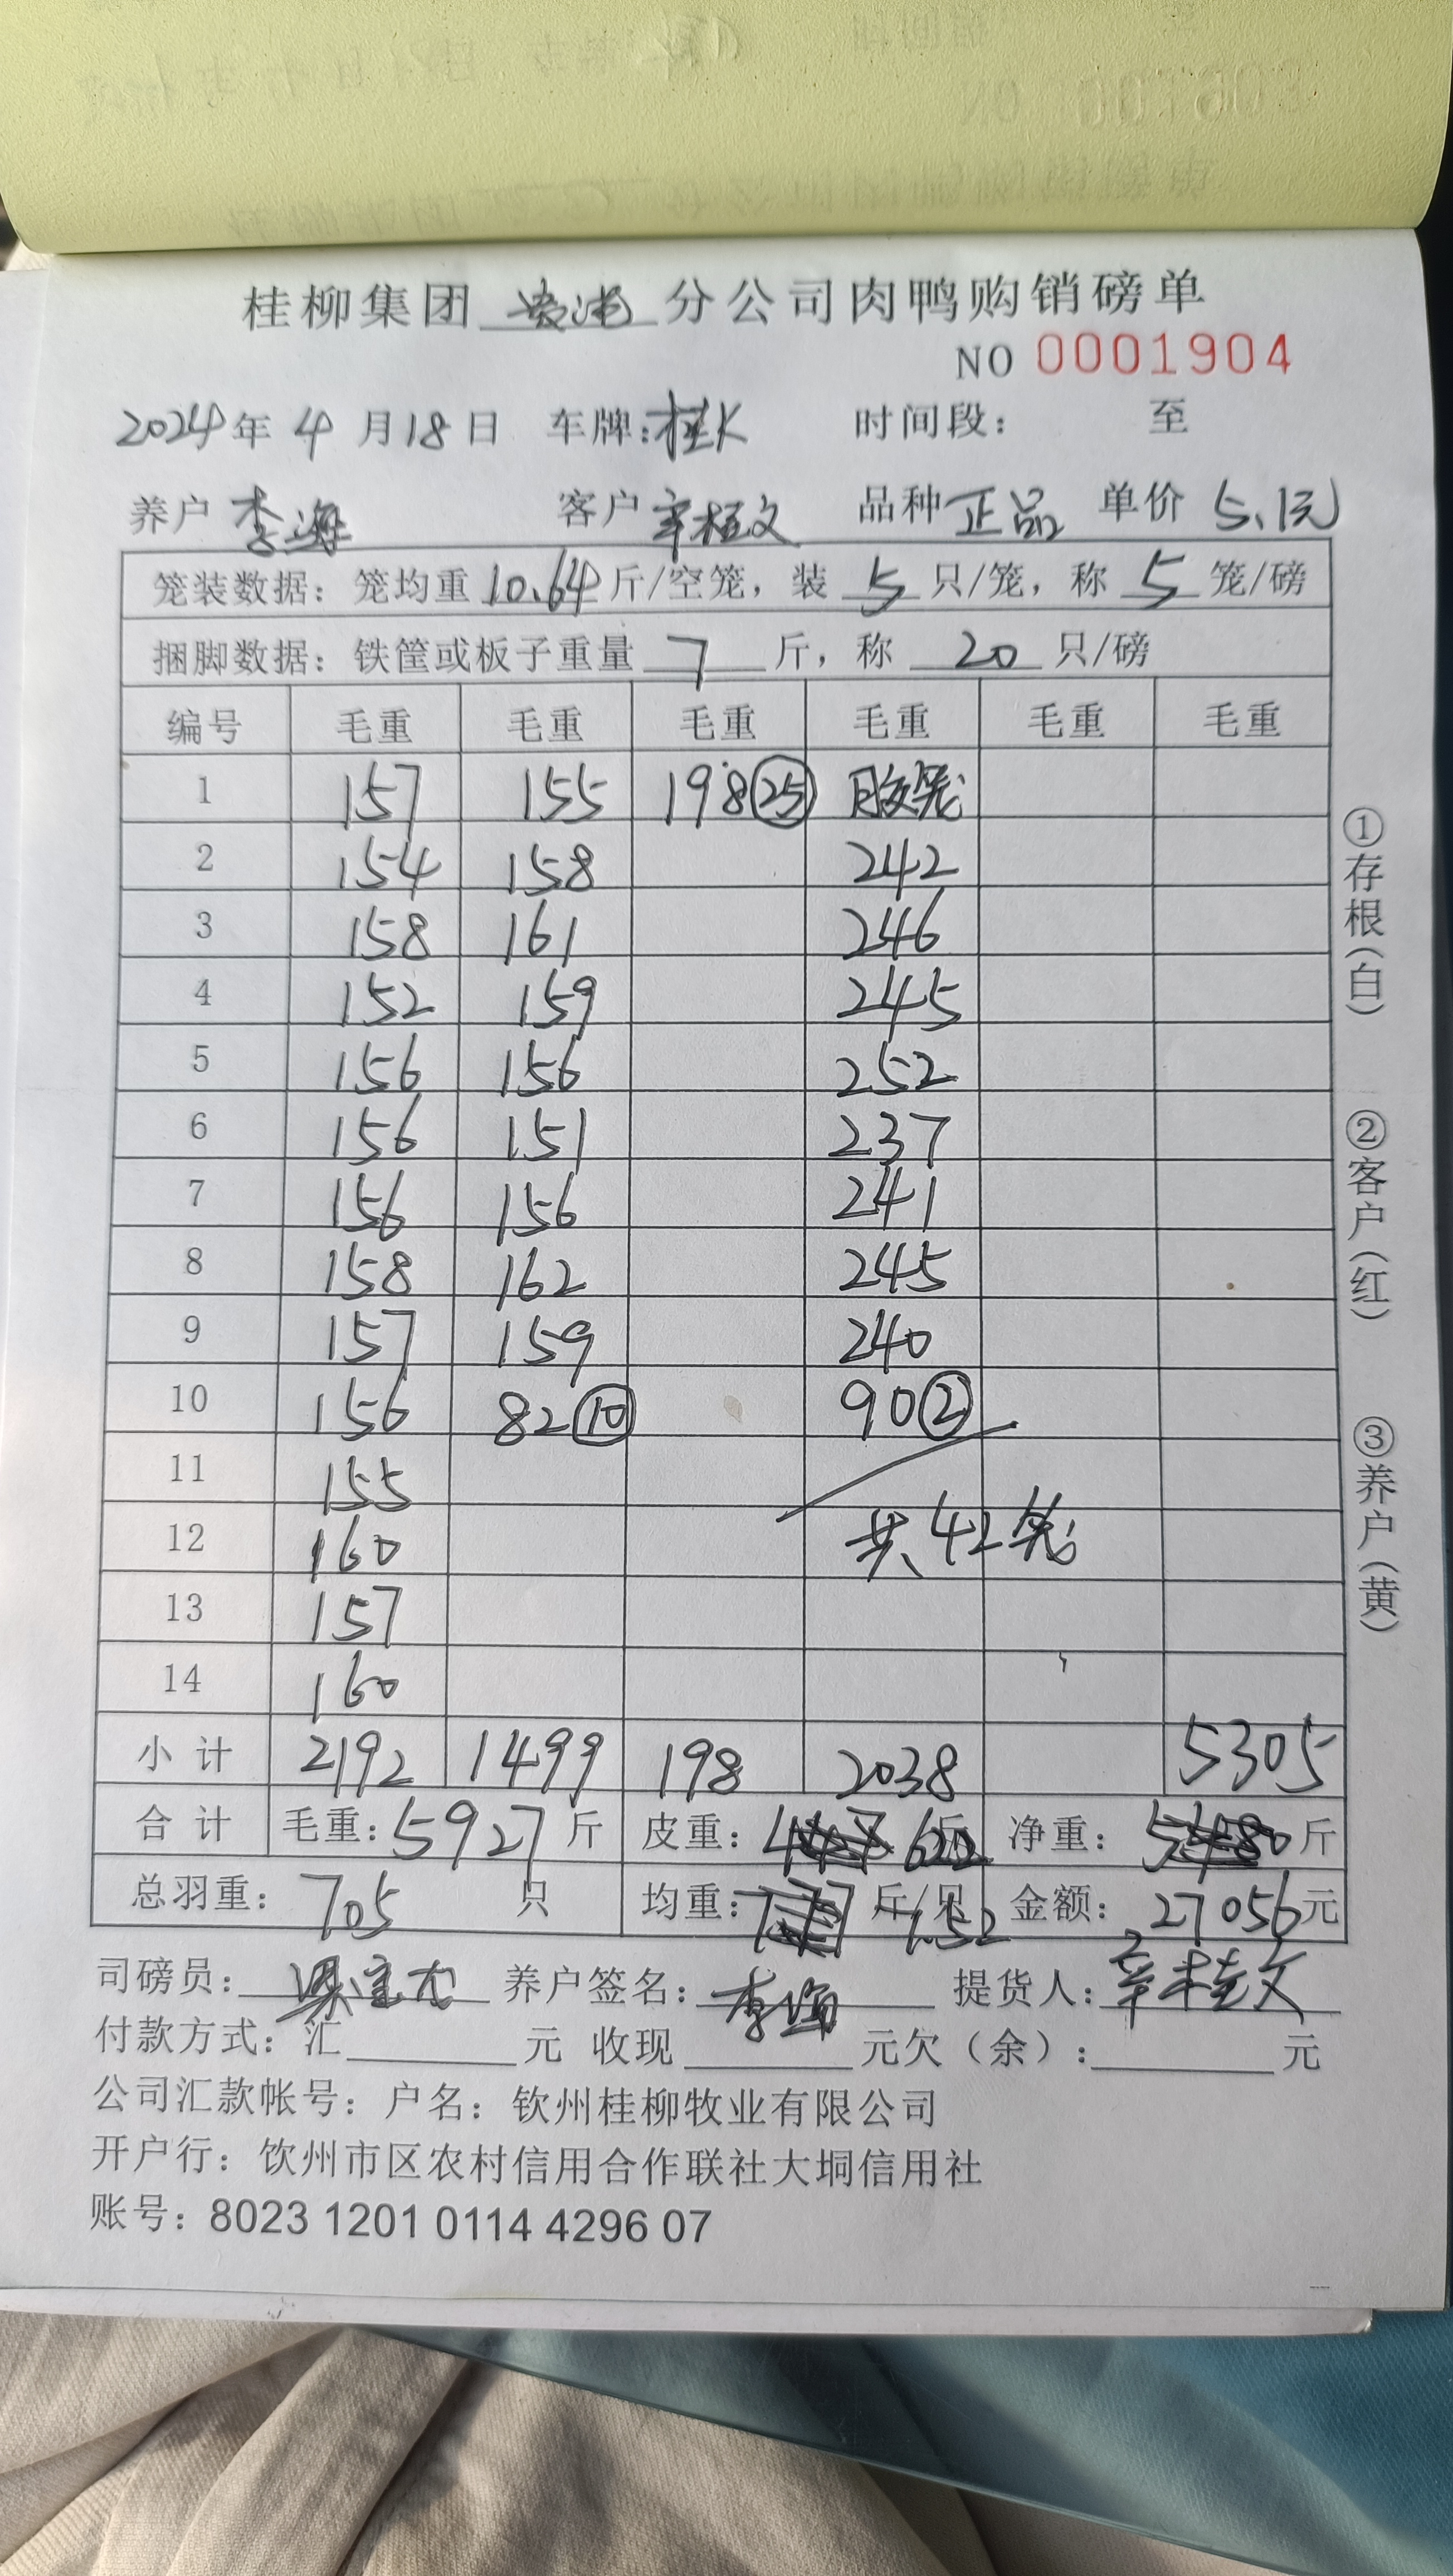 桂柳集团 贵港 分公司肉鸭购销磅单
NO 0001904
2024年 4 月 18 日 车牌:桂K 时间段: 至
养户 李海 客户 辛桂文 品种 正品 单价 5.1元
笼装数据: 笼均重 10.64 斤/空笼, 装 5 只/笼, 称 5 笼/磅
捆脚数据: 铁筐或板子重量 7 斤, 称 20 只/磅
编号 毛重 毛重 毛重 毛重 毛重 毛重
1 157 155 198㉕ 胶笼
2 154 158 242
3 158 161 246
4 152 159 245
5 156 156 252
6 156 151 237
7 156 156 241
8 158 162 245
9 157 159 240
10 156 82⑩ 90②
11 155
12 160 共42笼
13 157
14 160
小计 2192 1499 198 2038 5305
合计 毛重: 5927 斤 皮重: 622 斤 净重: 斤
总羽重: 705 只 均重: 7.52 斤/只 金额: 27056元
司磅员: 养户签名: 李海 提货人: 辛桂文
付款方式: 汇 元 收现 元欠(余): 元
公司汇款帐号: 户名: 钦州桂柳牧业有限公司
开户行: 饮州市区农村信用合作联社大垌信用社
账号: 8023 1201 0114 4296 07
①存根(白)
②客户(红)
③养户(黄)